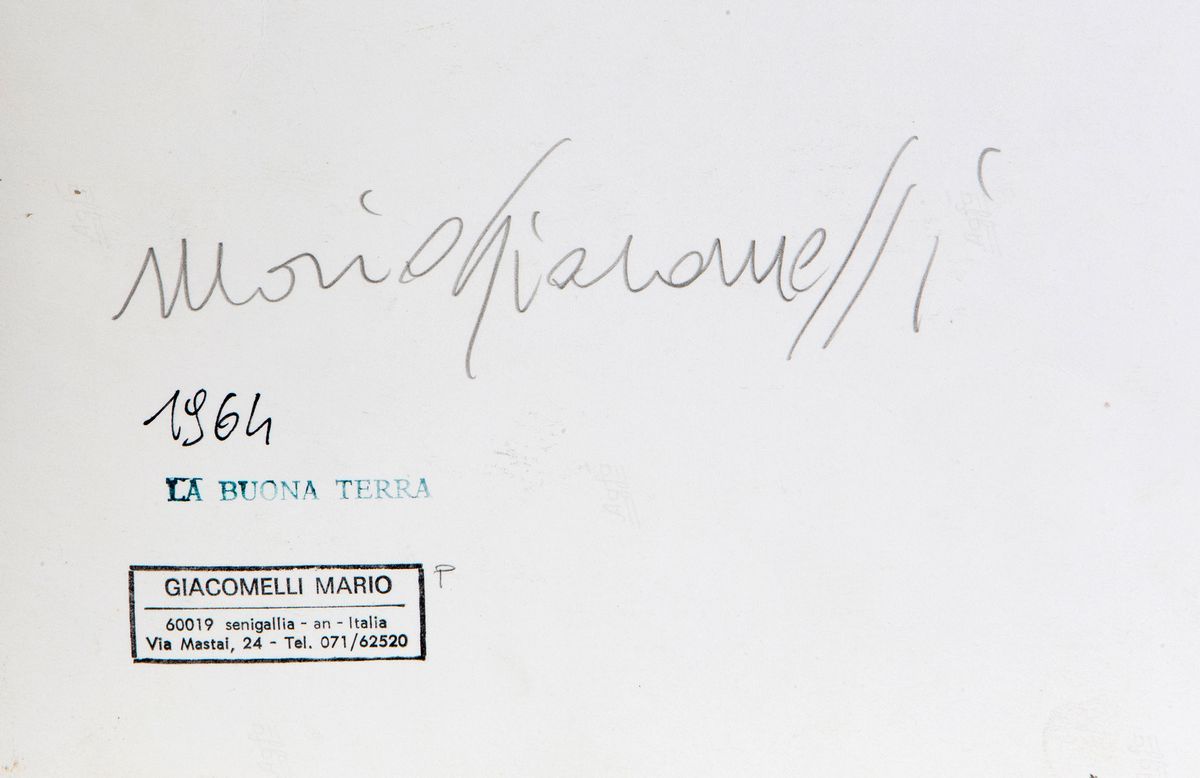 Mario Giacomelli
1964
LA BUONA TERRA
GIACOMELLI MARIO
P
60019 senigallia - an - Italia
Via Mastai, 24 - Tel. 071/62520